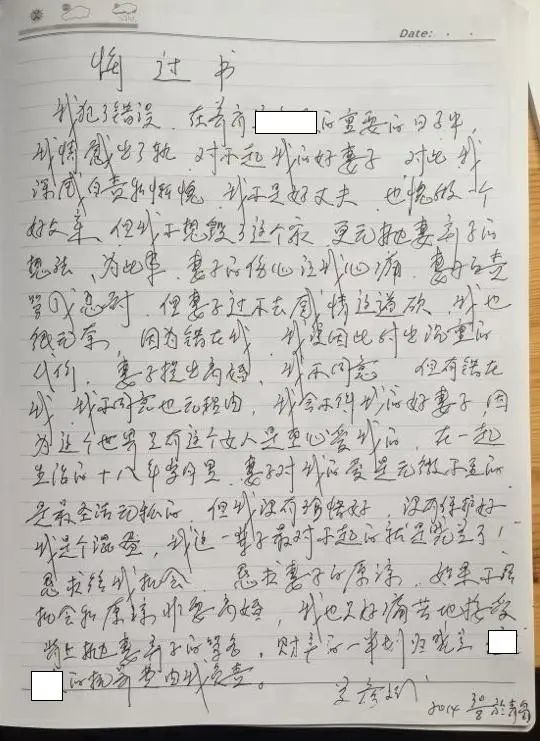 Date:
悔过书
我犯了错误. 在养育的重要的日子中,
我情感出了轨. 对不起我的好妻子. 对此我
深感自责和惭愧. 我不是好丈夫. 也愧做一个
好父亲. 但我不想毁了这个家. 更无抛妻弃子的
想法, 为此事. 妻子的伤心让我心痛. 妻子责
骂我忍耐. 但妻子过不去感情这道砍, 我也
很无奈, 因为错在我. 我要因此付出沉重的
代价, 妻子提出离婚, 我不同意 但有错在
我. 我不同意也无理由, 我舍不得我的好妻子, 因
为这个世界只有这个女人是真心爱我的, 在一起
生活的十八年岁月里. 妻子对我的爱是无微不至的
是最圣洁无私的. 但我没有珍惜好, 没有保护好
我是个混蛋, 我这一辈子最对不起的就是
恳求给我机会. 恳求妻子的原谅. 如果不给
机会和原谅非要离婚, 我也只好痛苦地接受
背上抛妻弃子的骂名, 财产的一半划归
的抚养费由我负责。
2014 30/8 于青岛